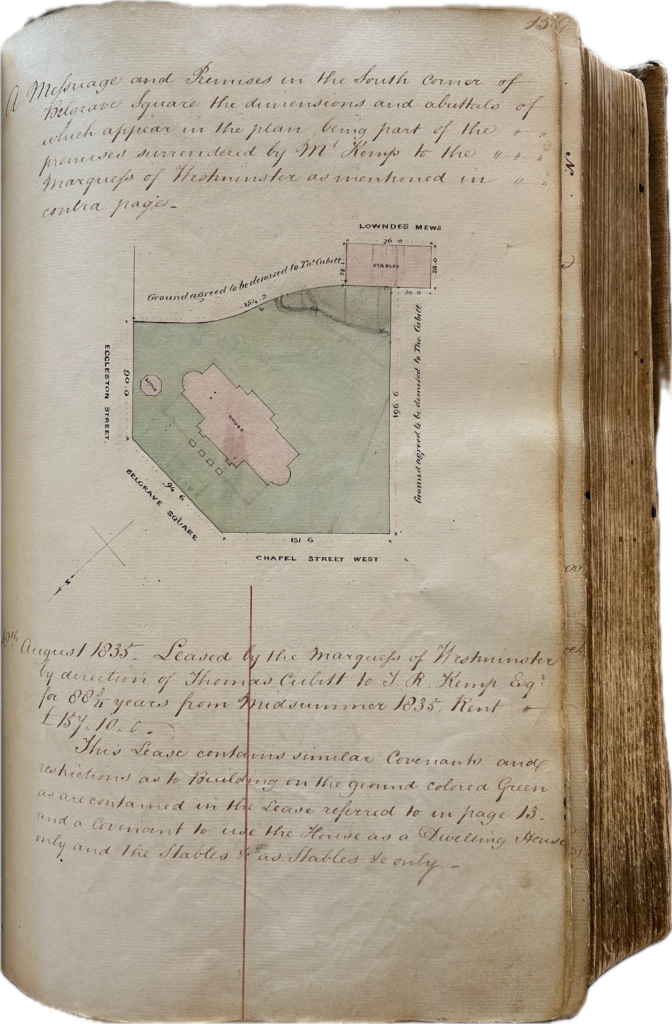 15
A Messuage and Premises in the South Corner of
Belgrave Square the dimensions and abuttals of
which appear in the plan, being part of the " "
premises surrendered by Mr Kemp to the " " "
Marquess of Westminster as mentioned in " "
contra page.
LOWNDES MEWS
76 0
STABLES
28 0
Ground agreed to be demised to Thos Cubitt
154 2
Ground agreed to be demised to Thos Cubitt.
196 6
ECCLESTON STREET
90 0
HOUSE
94 6
BELGRAVE SQUARE
131 6
CHAPEL STREET WEST
August 1835. Leased by the Marquess of Westminster
by direction of Thomas Cubitt to T. R. Kemp Esqr
for 88 3/4 years from Midsummer 1835. Rent "
£157. 10. 6.
This Lease contains similar Covenants and
restrictions as to Building on the ground colored Green
as are contained in the Lease referred to in page 13.
and a Covenant to use the House as a Dwelling House
only and the Stables &c as Stables &c only.